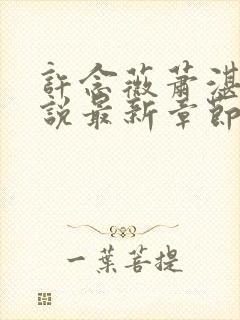 許念薇蕭湛
說最新章節
一葉菩提